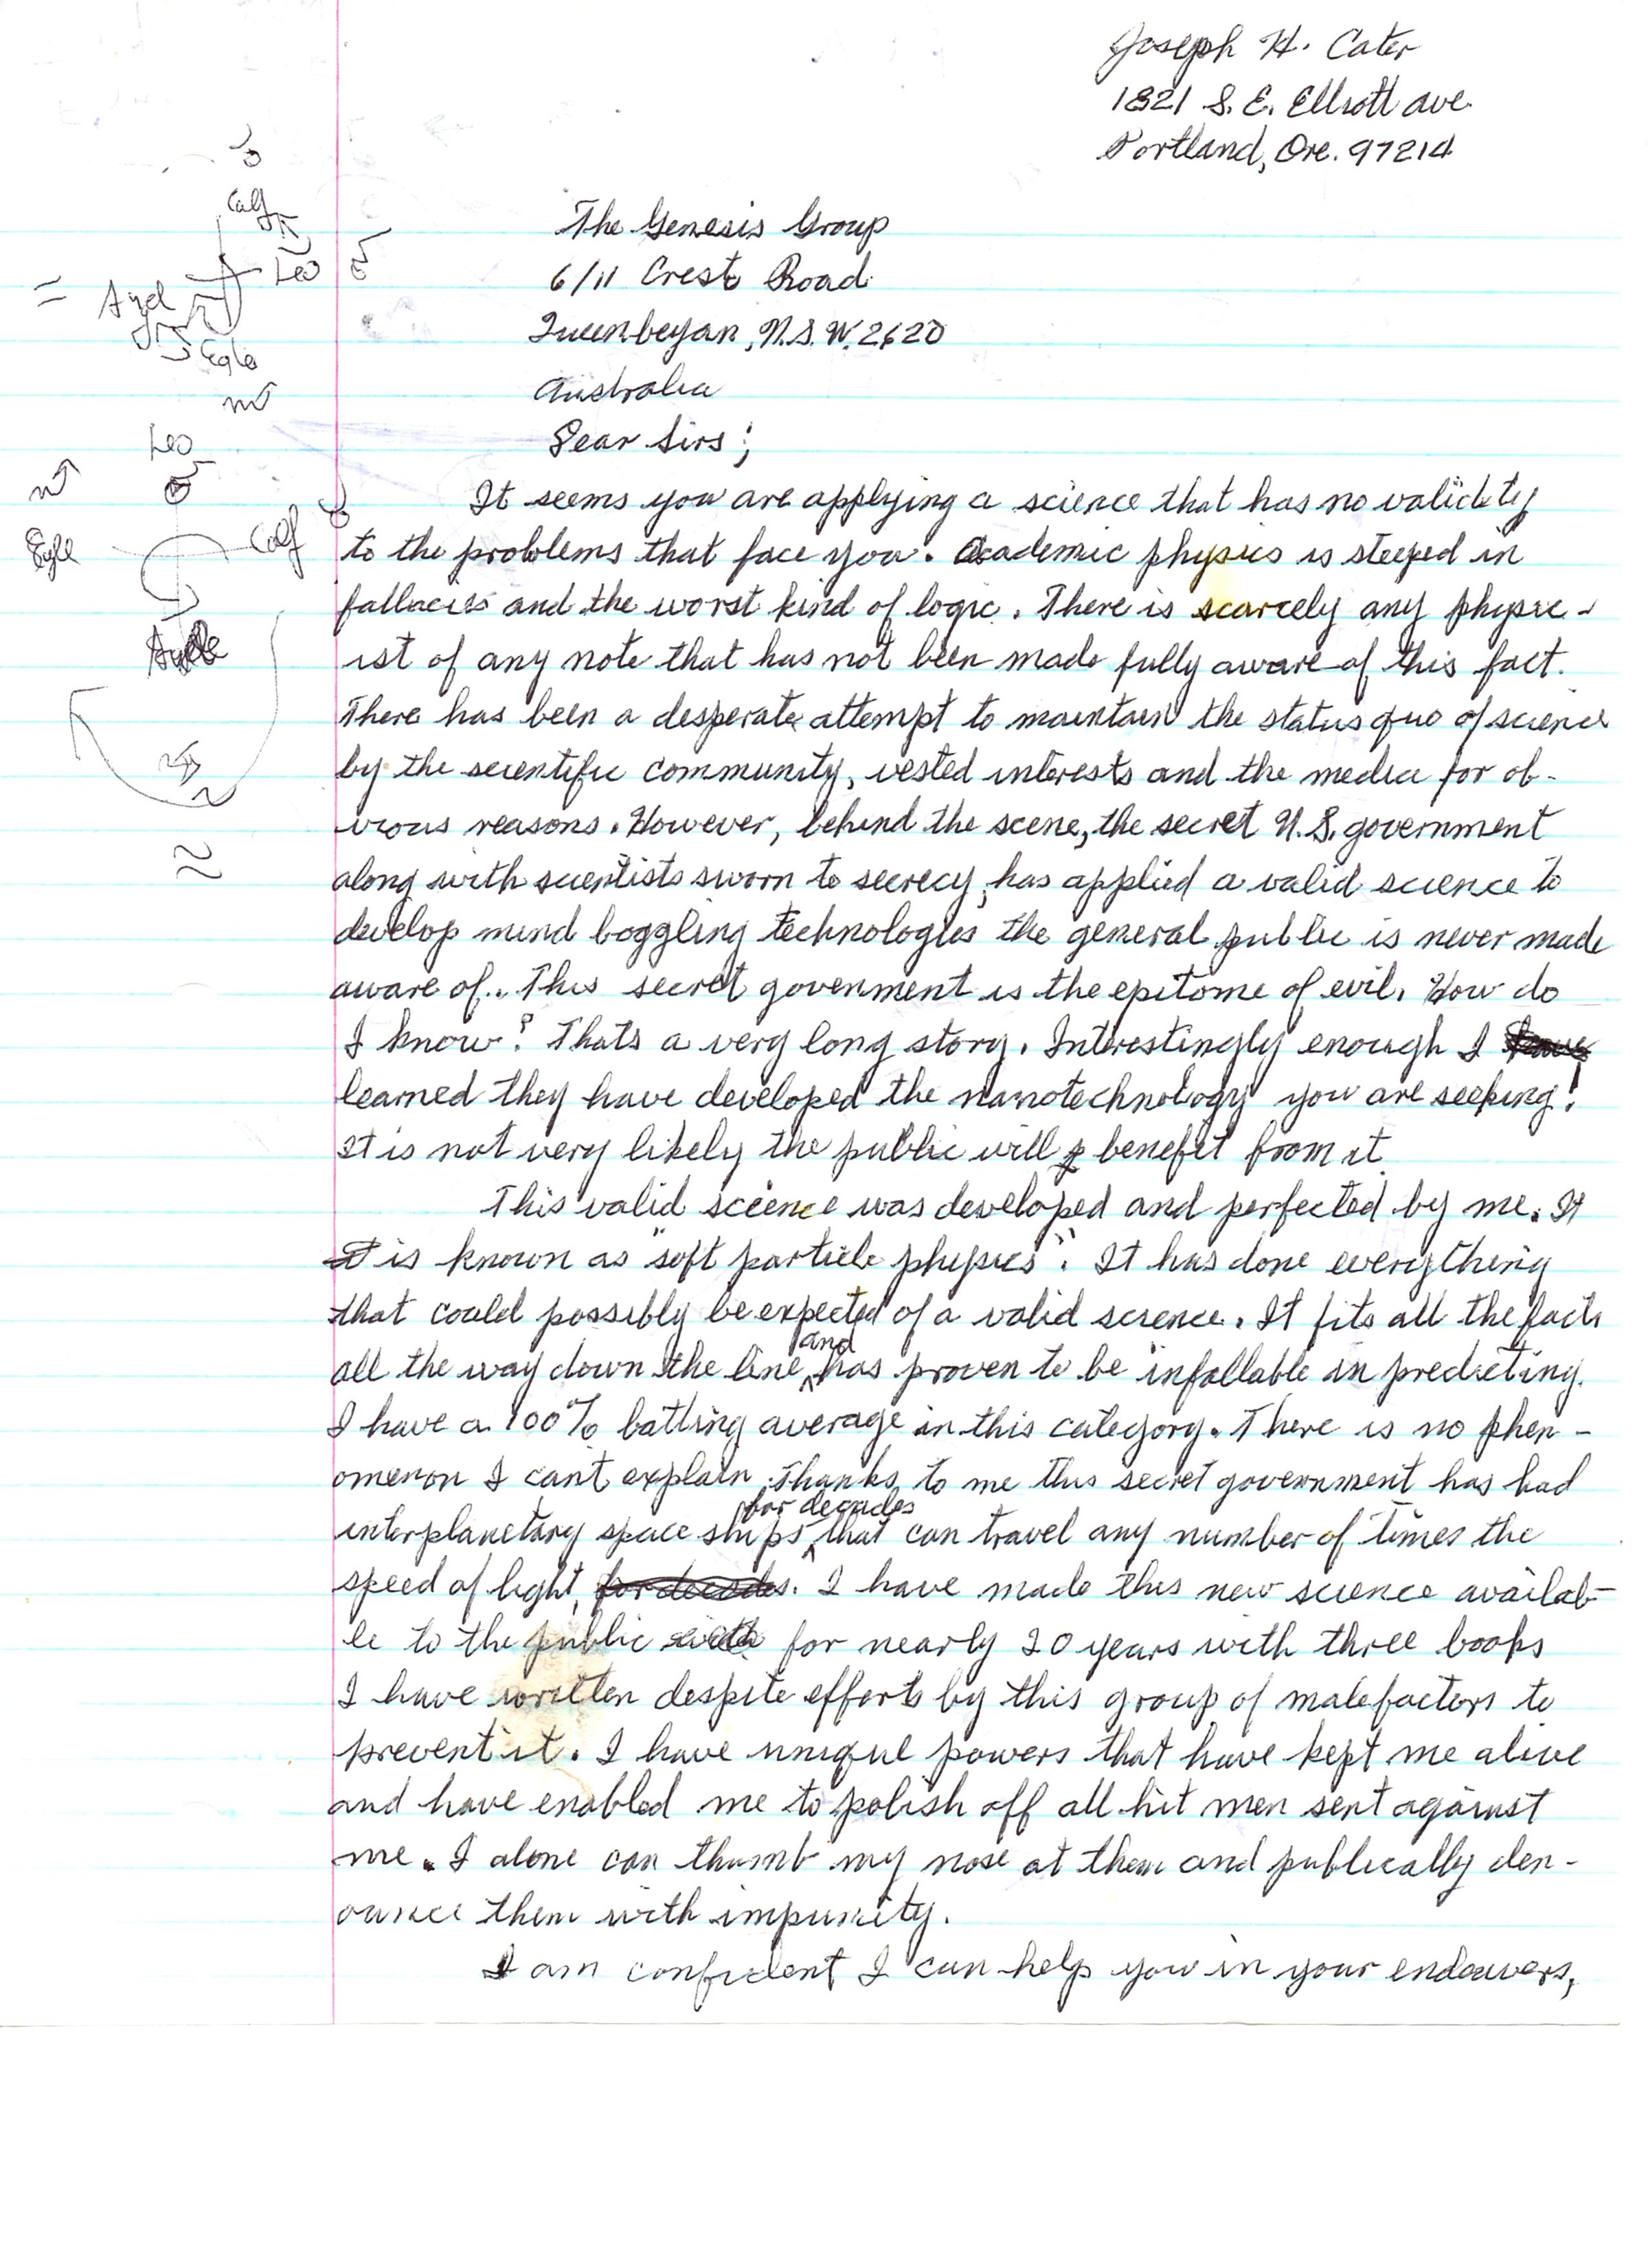 Joseph H. Cater
1821 S. E. Elliott ave.
Portland, Ore. 97214
The Genesis Group
6/11 Crest Road
Queenbeyan, N.S.W. 2620
Australia
Dear Sirs;
Calf
Leo
=
Leo
Calf
It seems you are applying a science that has no validity
to the problems that face you. Academic physics is steeped in
fallacies and the worst kind of logic. There is scarcely any physic-
ist of any note that has not been made fully aware of this fact.
There has been a desperate attempt to maintain the status quo of science
by the scientific community, vested interests and the media for ob-
vious reasons. However, behind the scene, the secret U.S. government
along with scientists sworn to secrecy, has applied a valid science to
develop mind boggling technologies the general public is never made
aware of. This secret govenment is the epitome of evil. How do
I know? Thats a very long story. Interestingly enough I
learned they have developed the nanotechnology you are seeking!
It is not very likely the public will benefit from it.
This valid science was developed and perfected by me. It
is known as "soft particle physics". It has done everything
that could possibly be expected of a valid science. It fits all the facts
all the way down the line, and has proven to be infallable in predicting.
I have a 100% batting average in this category. There is no phen-
omenon I cant explain. Thanks to me this secret government has had
interplanetary space ships for decades that can travel any number of times the
speed of light, for decades. I have made this new science availab-
le to the public for nearly 20 years with three books
I have written despite efforts by this group of malefactors to
prevent it. I have unique powers that have kept me alive
and have enabled me to polish off all hit men sent against
me. I alone can thumb my nose at them and publically den-
ounce them with impunity.
I am confident I can help you in your endeavers,